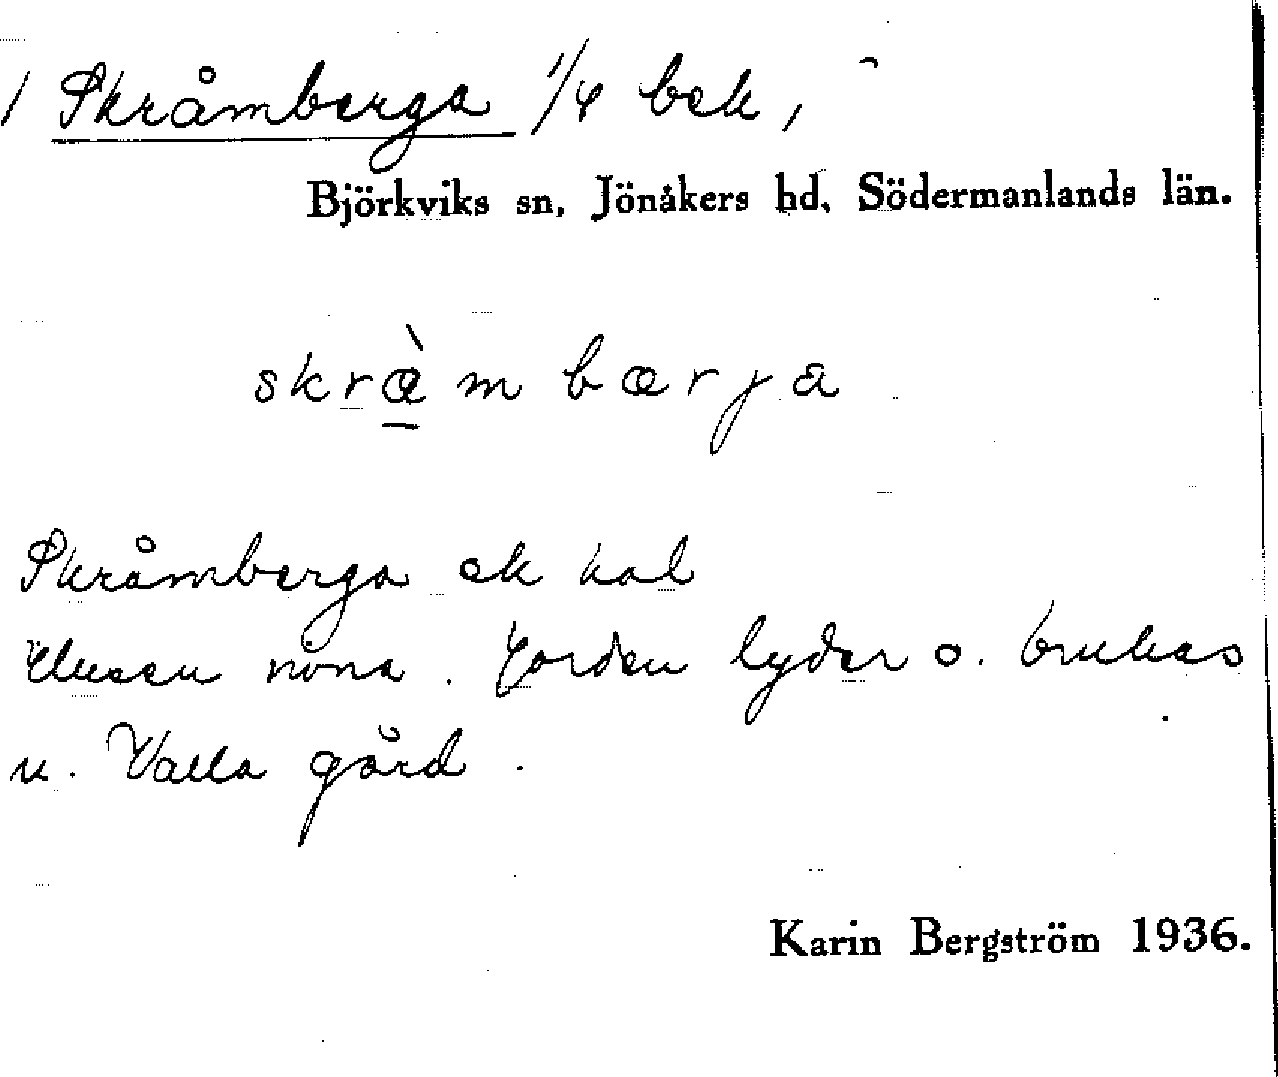 / Skråmberga 1/4 bek,
Björkviks sn, Jönåkers hd, Södermanlands län.
skràmbærja
Skråmberga ek kal
Husen nöna. Jorden lyder o. brukas
u. Valla gård.
Karin Bergström 1936.